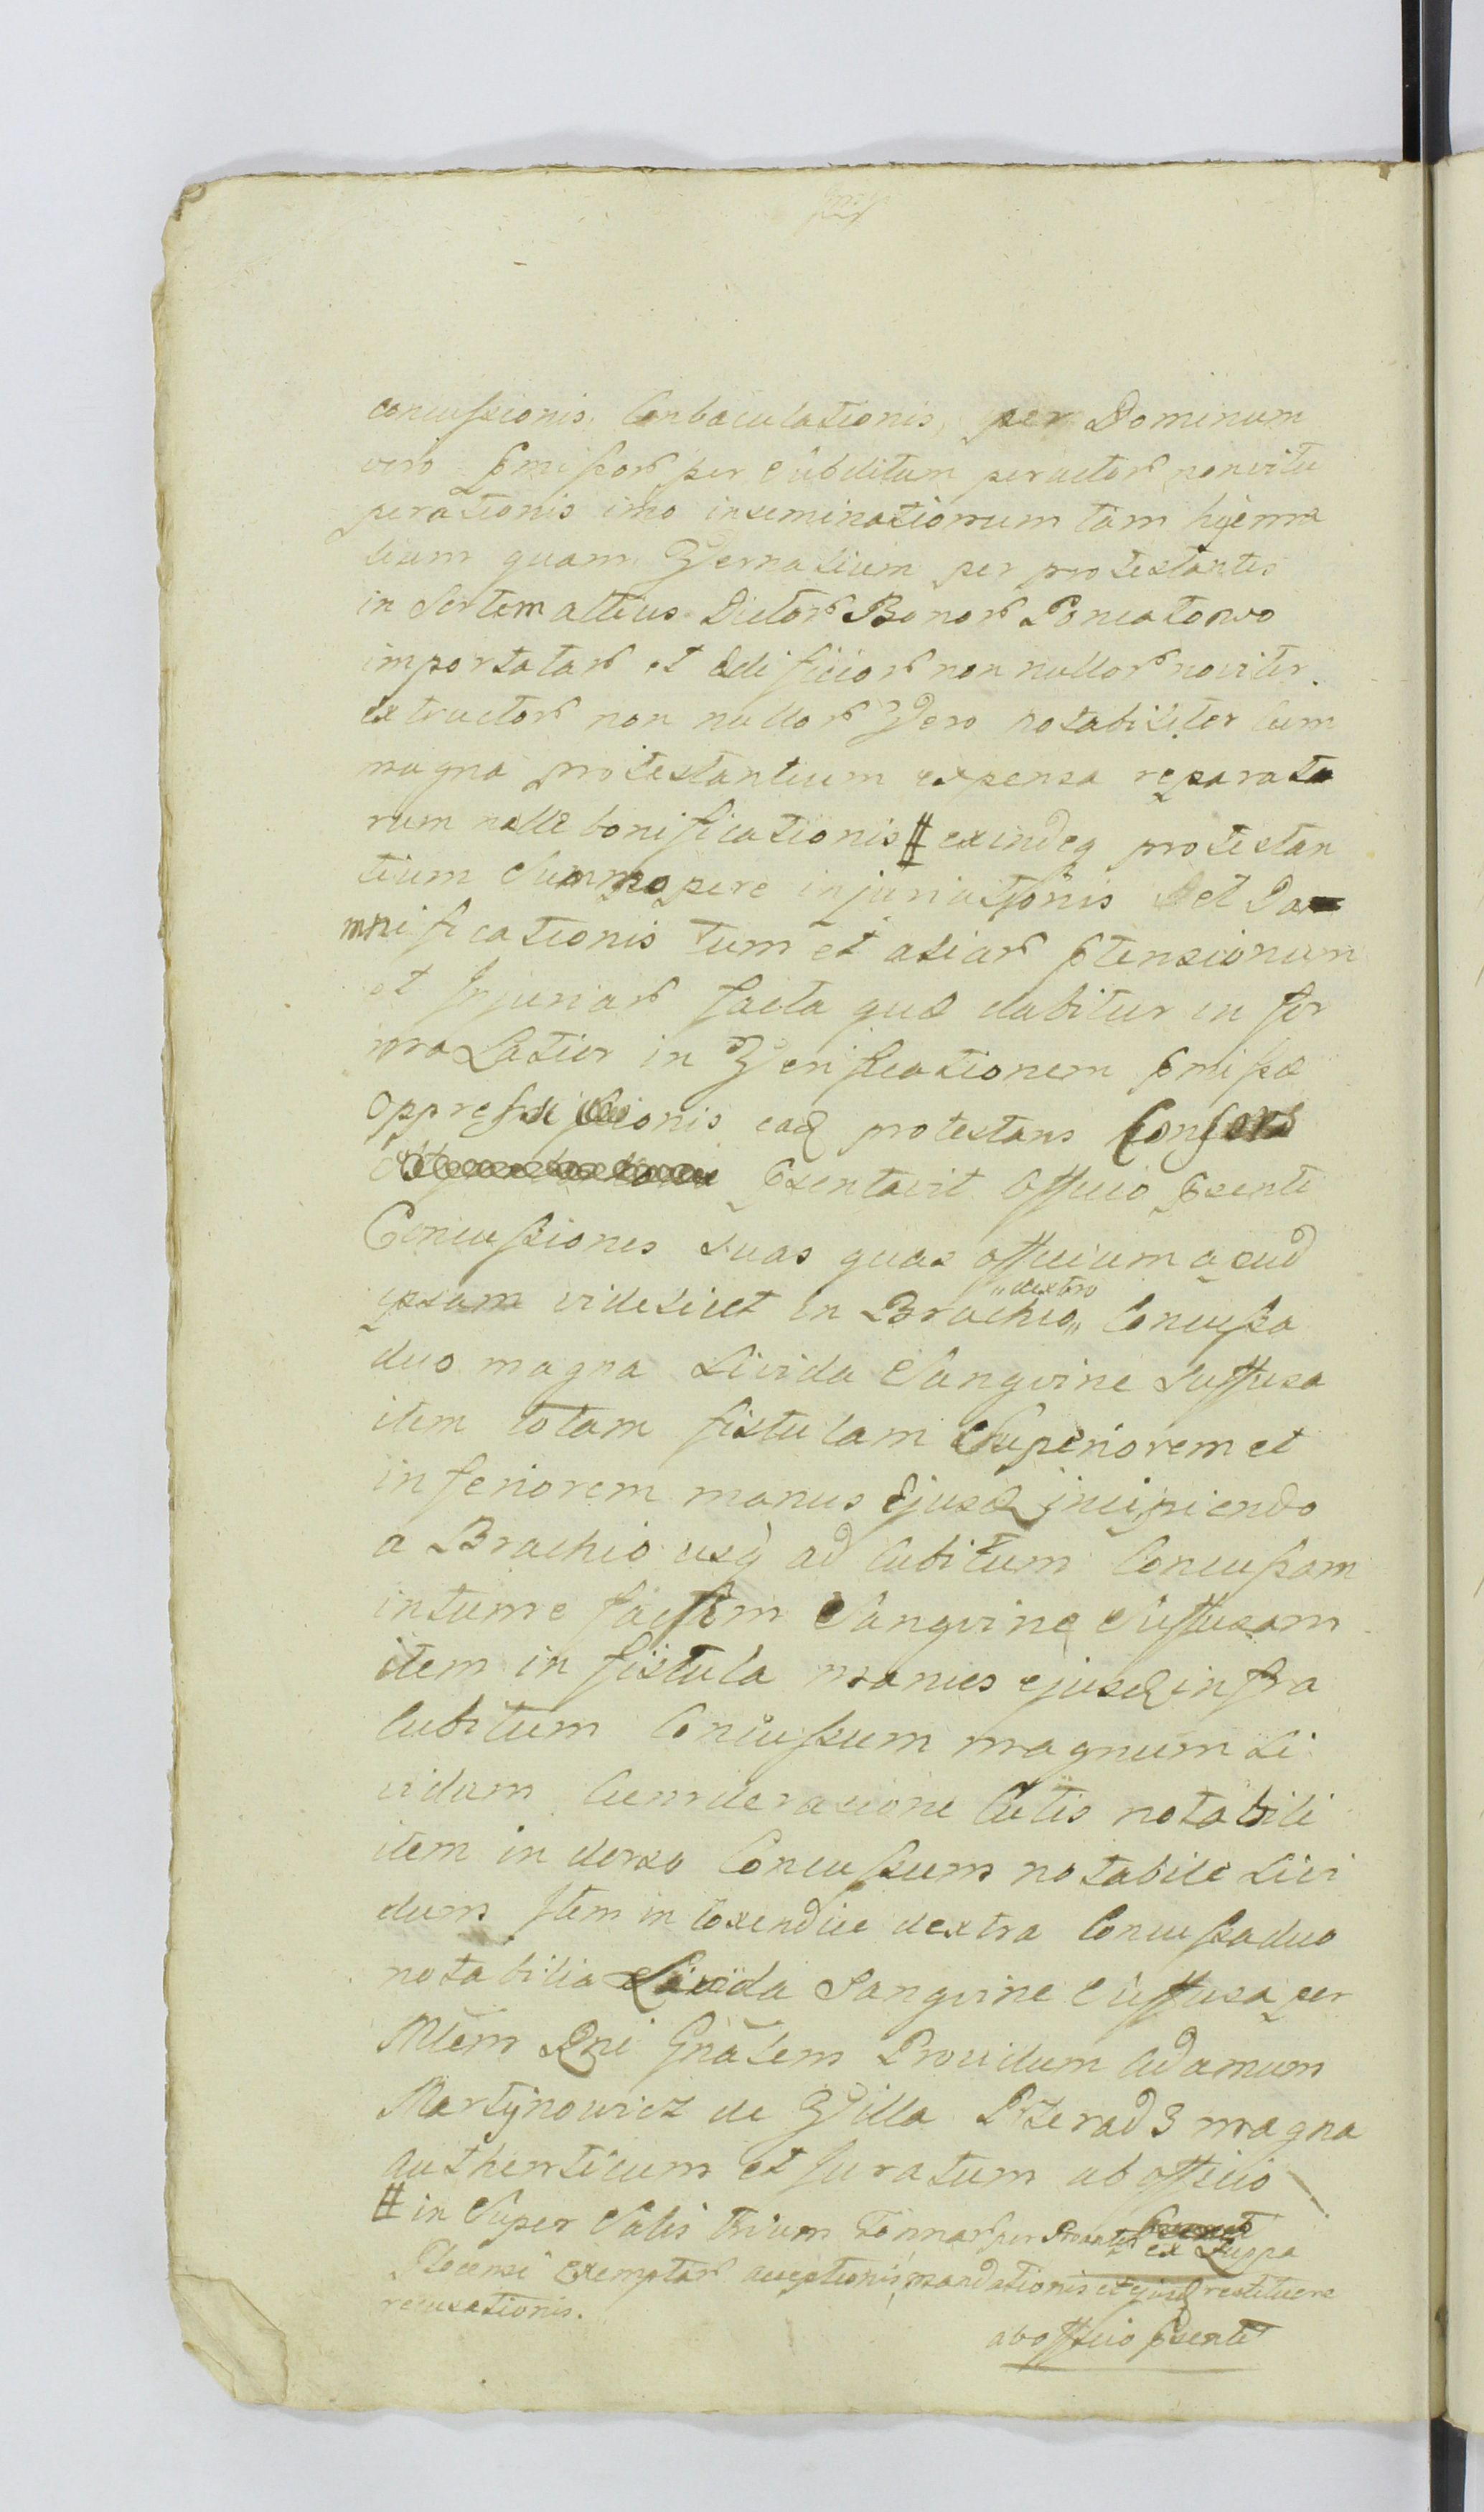 concussionis, Conbaculationis, per Dominum
vero pmissor per Subditum peractor nonvitu
perationis imo inseminationum tam hyema
lium quam Vernalium per protestantes
in Sortem altius Dictor Bonor Poniatowo
importatar et Edificior non nullor noviter
extructor non nullor Vero notabiliter Cum
magna protestantium expensa reparata
rum nolle bonificationis # exindeq protestan
tium Summopere injuriationis et Da
mnificationis tum et aliar ptensionum
et Injuriar facta quæ dabitur in for
ma Latior in Verificationem pmissæ
oppressionis ead protestans Consors
psentavit Officio psenti
Concussiones suas quas officium apud
ipsam videlicet in Brachio „dextro„ Concussa
duo magna Livida Sangvine suffusa
item totam fistulam Superiorem et
inferiorem manus Ejusd incipiendo
a Brachio usq ad Cubitum Concussam
intumefactam Sangvine Suffusam
item in fistula manus ejusd infra
Cubitum Concussum magnum Li
vidum Cum derasione Cutis notabili
item in dorso Concussum notabile Livi
dum Item in Coxendice dextra Concussa duo
notabilia Livida Sangvine Suffusa per
Mlem Rni Gnalem Providum Adamum
Martynowicz de Villa Przerad magna
authenticum et Juratum ab officio
# in Super Salis trium Tonnar per Proantes ex Zuppa
Plocensi Exemptar acceptionis, mandationis et ejusd restituere
recusationis.
ab officio psenti